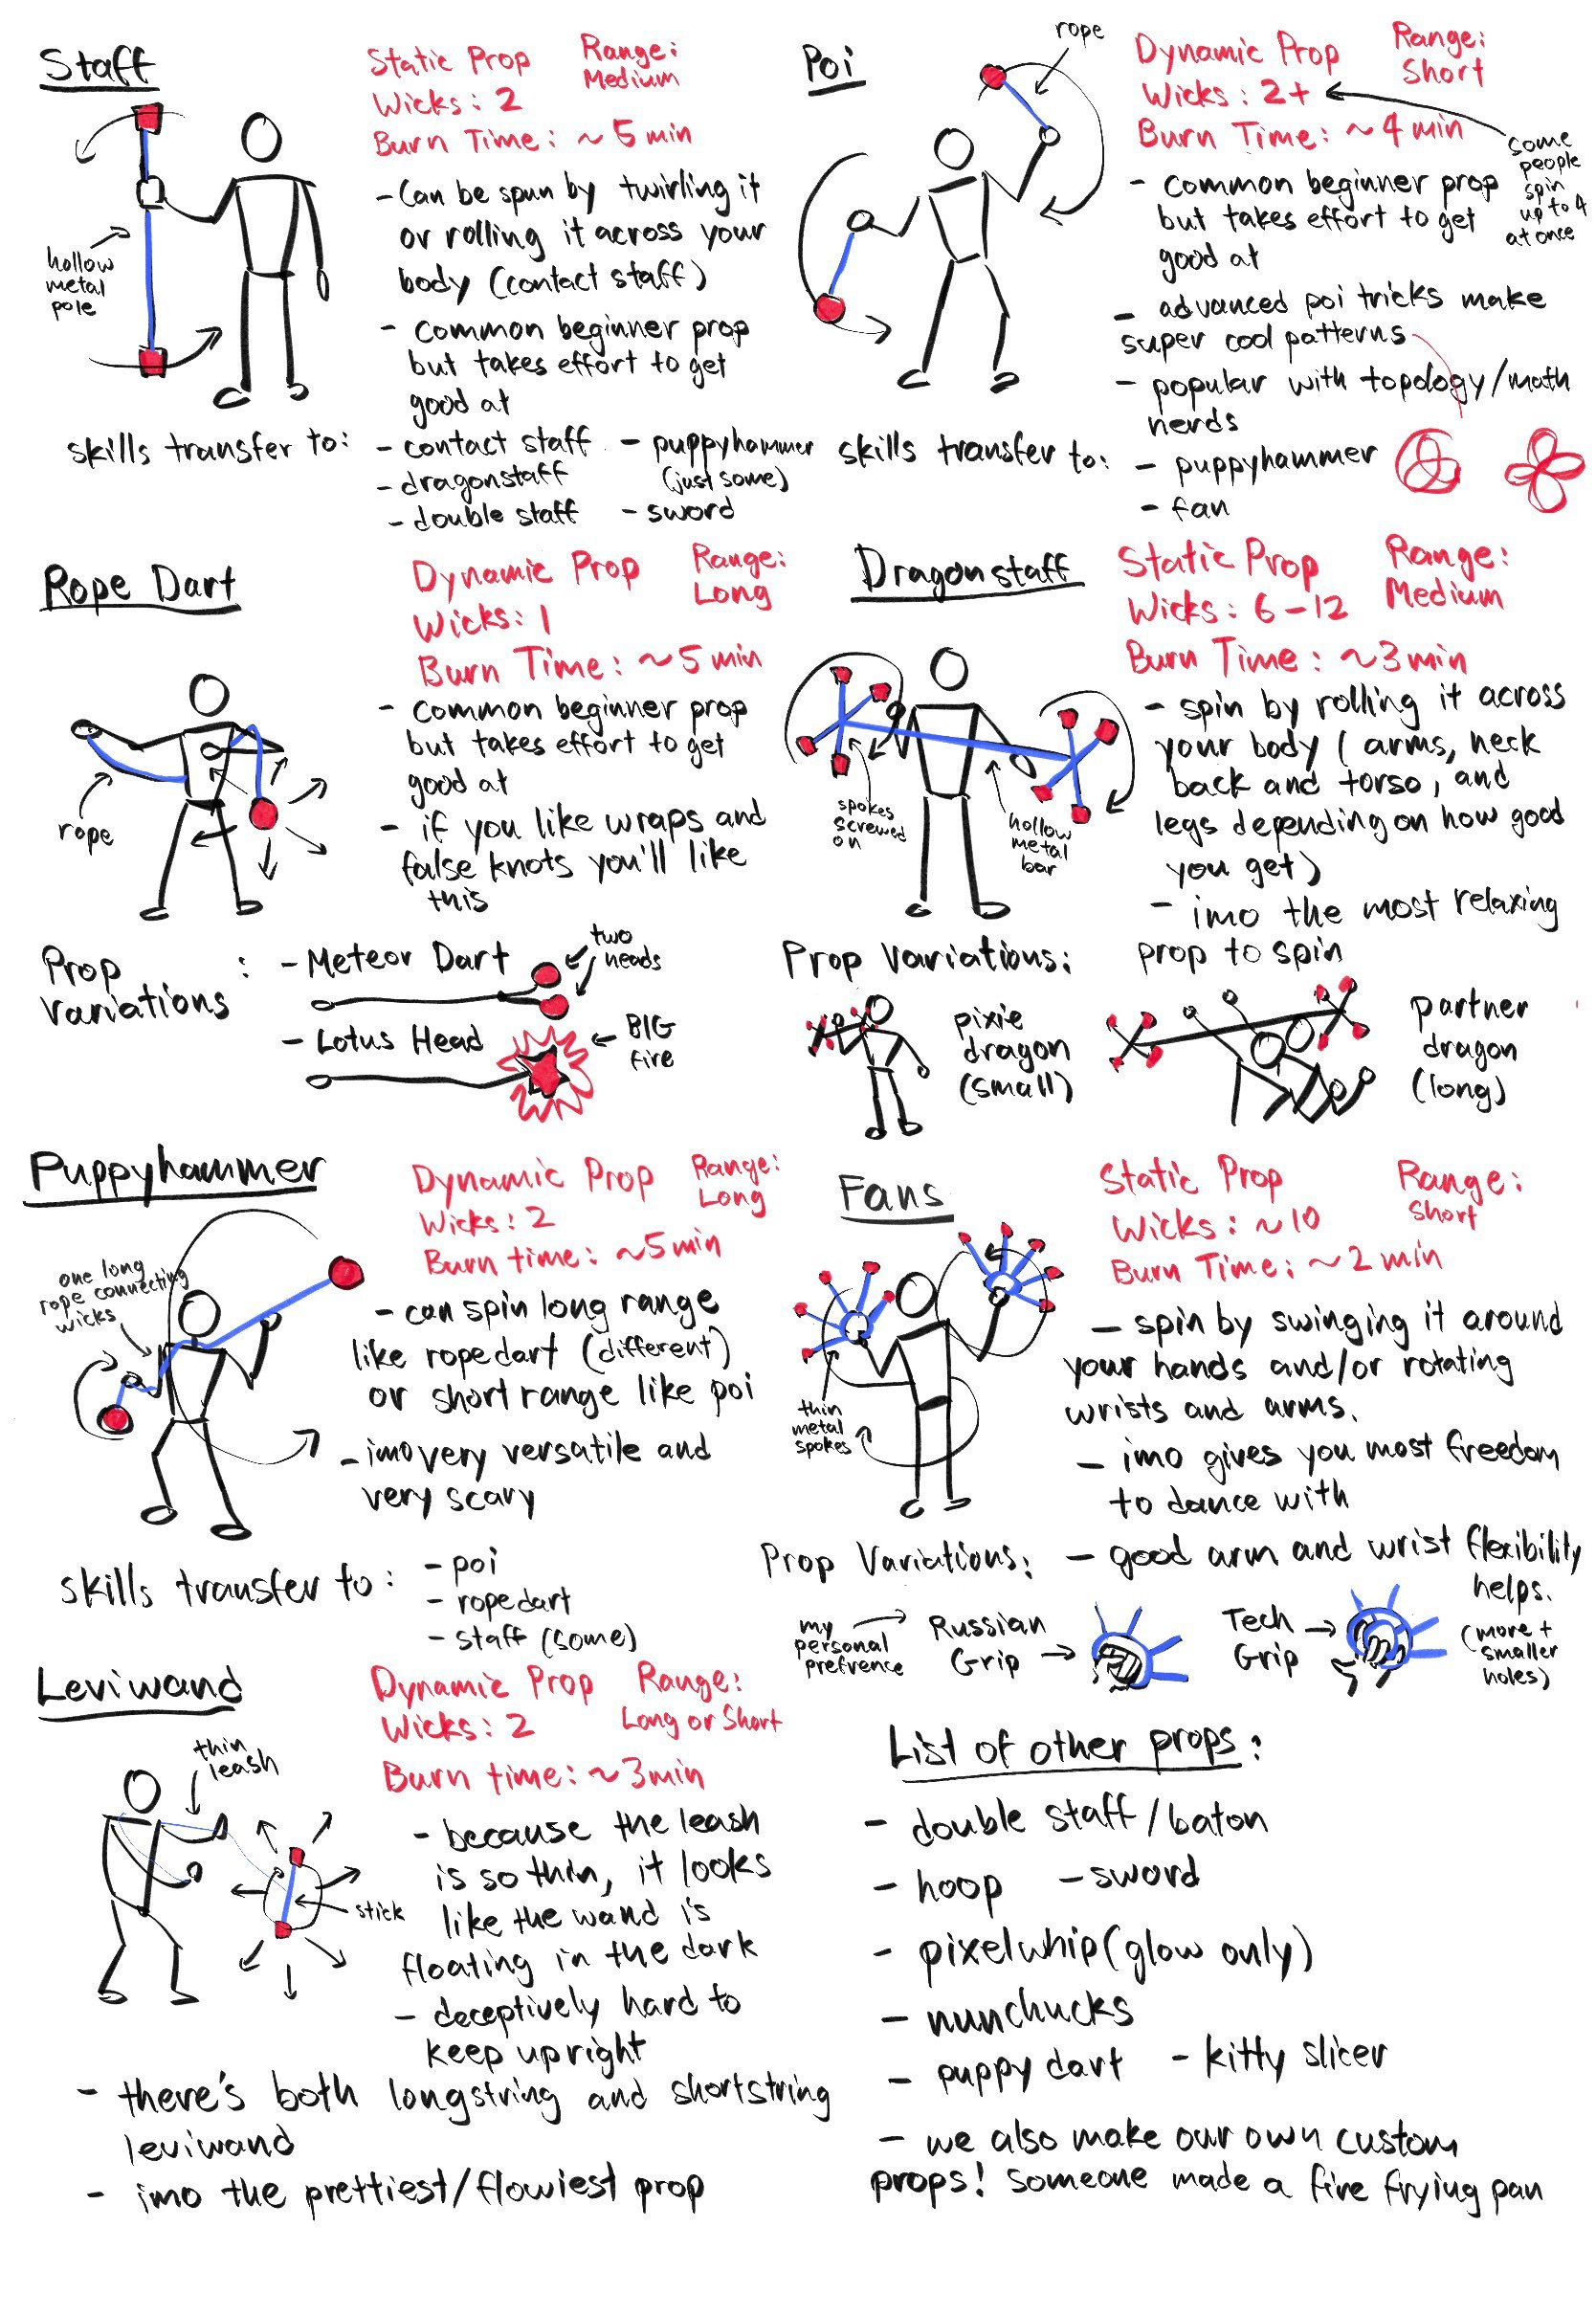 Staff
Static Prop
Range:
Medium
Wicks: 2
Burn Time: ~5 min
hollow
metal
pole
- Can be spun by twirling it
or rolling it across your
body (contact staff)
- common beginner prop
but takes effort to get
good at
skills transfer to:
- contact staff
- dragonstaff
- double staff
- puppyhammer
(just some)
- sword
Poi
rope
Dynamic Prop
Range:
Short
Wicks: 2+
Burn Time: ~4 min
some
people
spin
up to 4
at once
- common beginner prop
but takes effort to get
good at
- advanced poi tricks make
super cool patterns
- popular with topology/math
nerds
skills transfer to:
- puppyhammer
- fan
Rope Dart
Dynamic Prop
Range:
Long
Wicks: 1
Burn Time: ~5 min
rope
- common beginner prop
but takes effort to get
good at
- if you like wraps and
false knots you'll like
this
Prop
Variations
:
- Meteor Dart
two
heads
- Lotus Head
BIG
fire
Dragonstaff
Static Prop
Range:
Medium
Wicks: 6-12
Burn Time: ~3min
spokes
screwed
on
hollow
metal
bar
- spin by rolling it across
your body (arms, neck
back and torso, and
legs depending on how good
you get)
- imo the most relaxing
prop to spin
Prop Variations:
pixie
dragon
(small)
partner
dragon
(long)
Puppyhammer
Dynamic Prop
Range:
Long
Wicks: 2
Burn time: ~5min
one long
rope connecting
wicks
- can spin long range
like ropedart (different)
or short range like poi
- imo very versatile and
very scary
skills transfer to:
- poi
- ropedart
- staff (some)
Fans
Static Prop
Range:
Short
Wicks: ~10
Burn Time: ~2 min
thin
metal
spokes
- spin by swinging it around
your hands and/or rotating
wrists and arms.
- imo gives you most freedom
to dance with
- good arm and wrist flexibility
helps.
Prop Variations:
my
personal
prefrence
Russian
Grip
Tech
Grip
(more +
smaller
holes)
Leviwand
Dynamic Prop
Range:
Long or Short
Wicks: 2
Burn time: ~3min
thin
leash
stick
- because the leash
is so thin, it looks
like the wand is
floating in the dark
- deceptively hard to
keep upright
- there's both longstring and shortstring
leviwand
- imo the prettiest/flowiest prop
List of other props:
- double staff/baton
- hoop - sword
- pixelwhip (glow only)
- nunchucks
- puppy dart - kitty slicer
- we also make our own custom
props! Someone made a fire frying pan